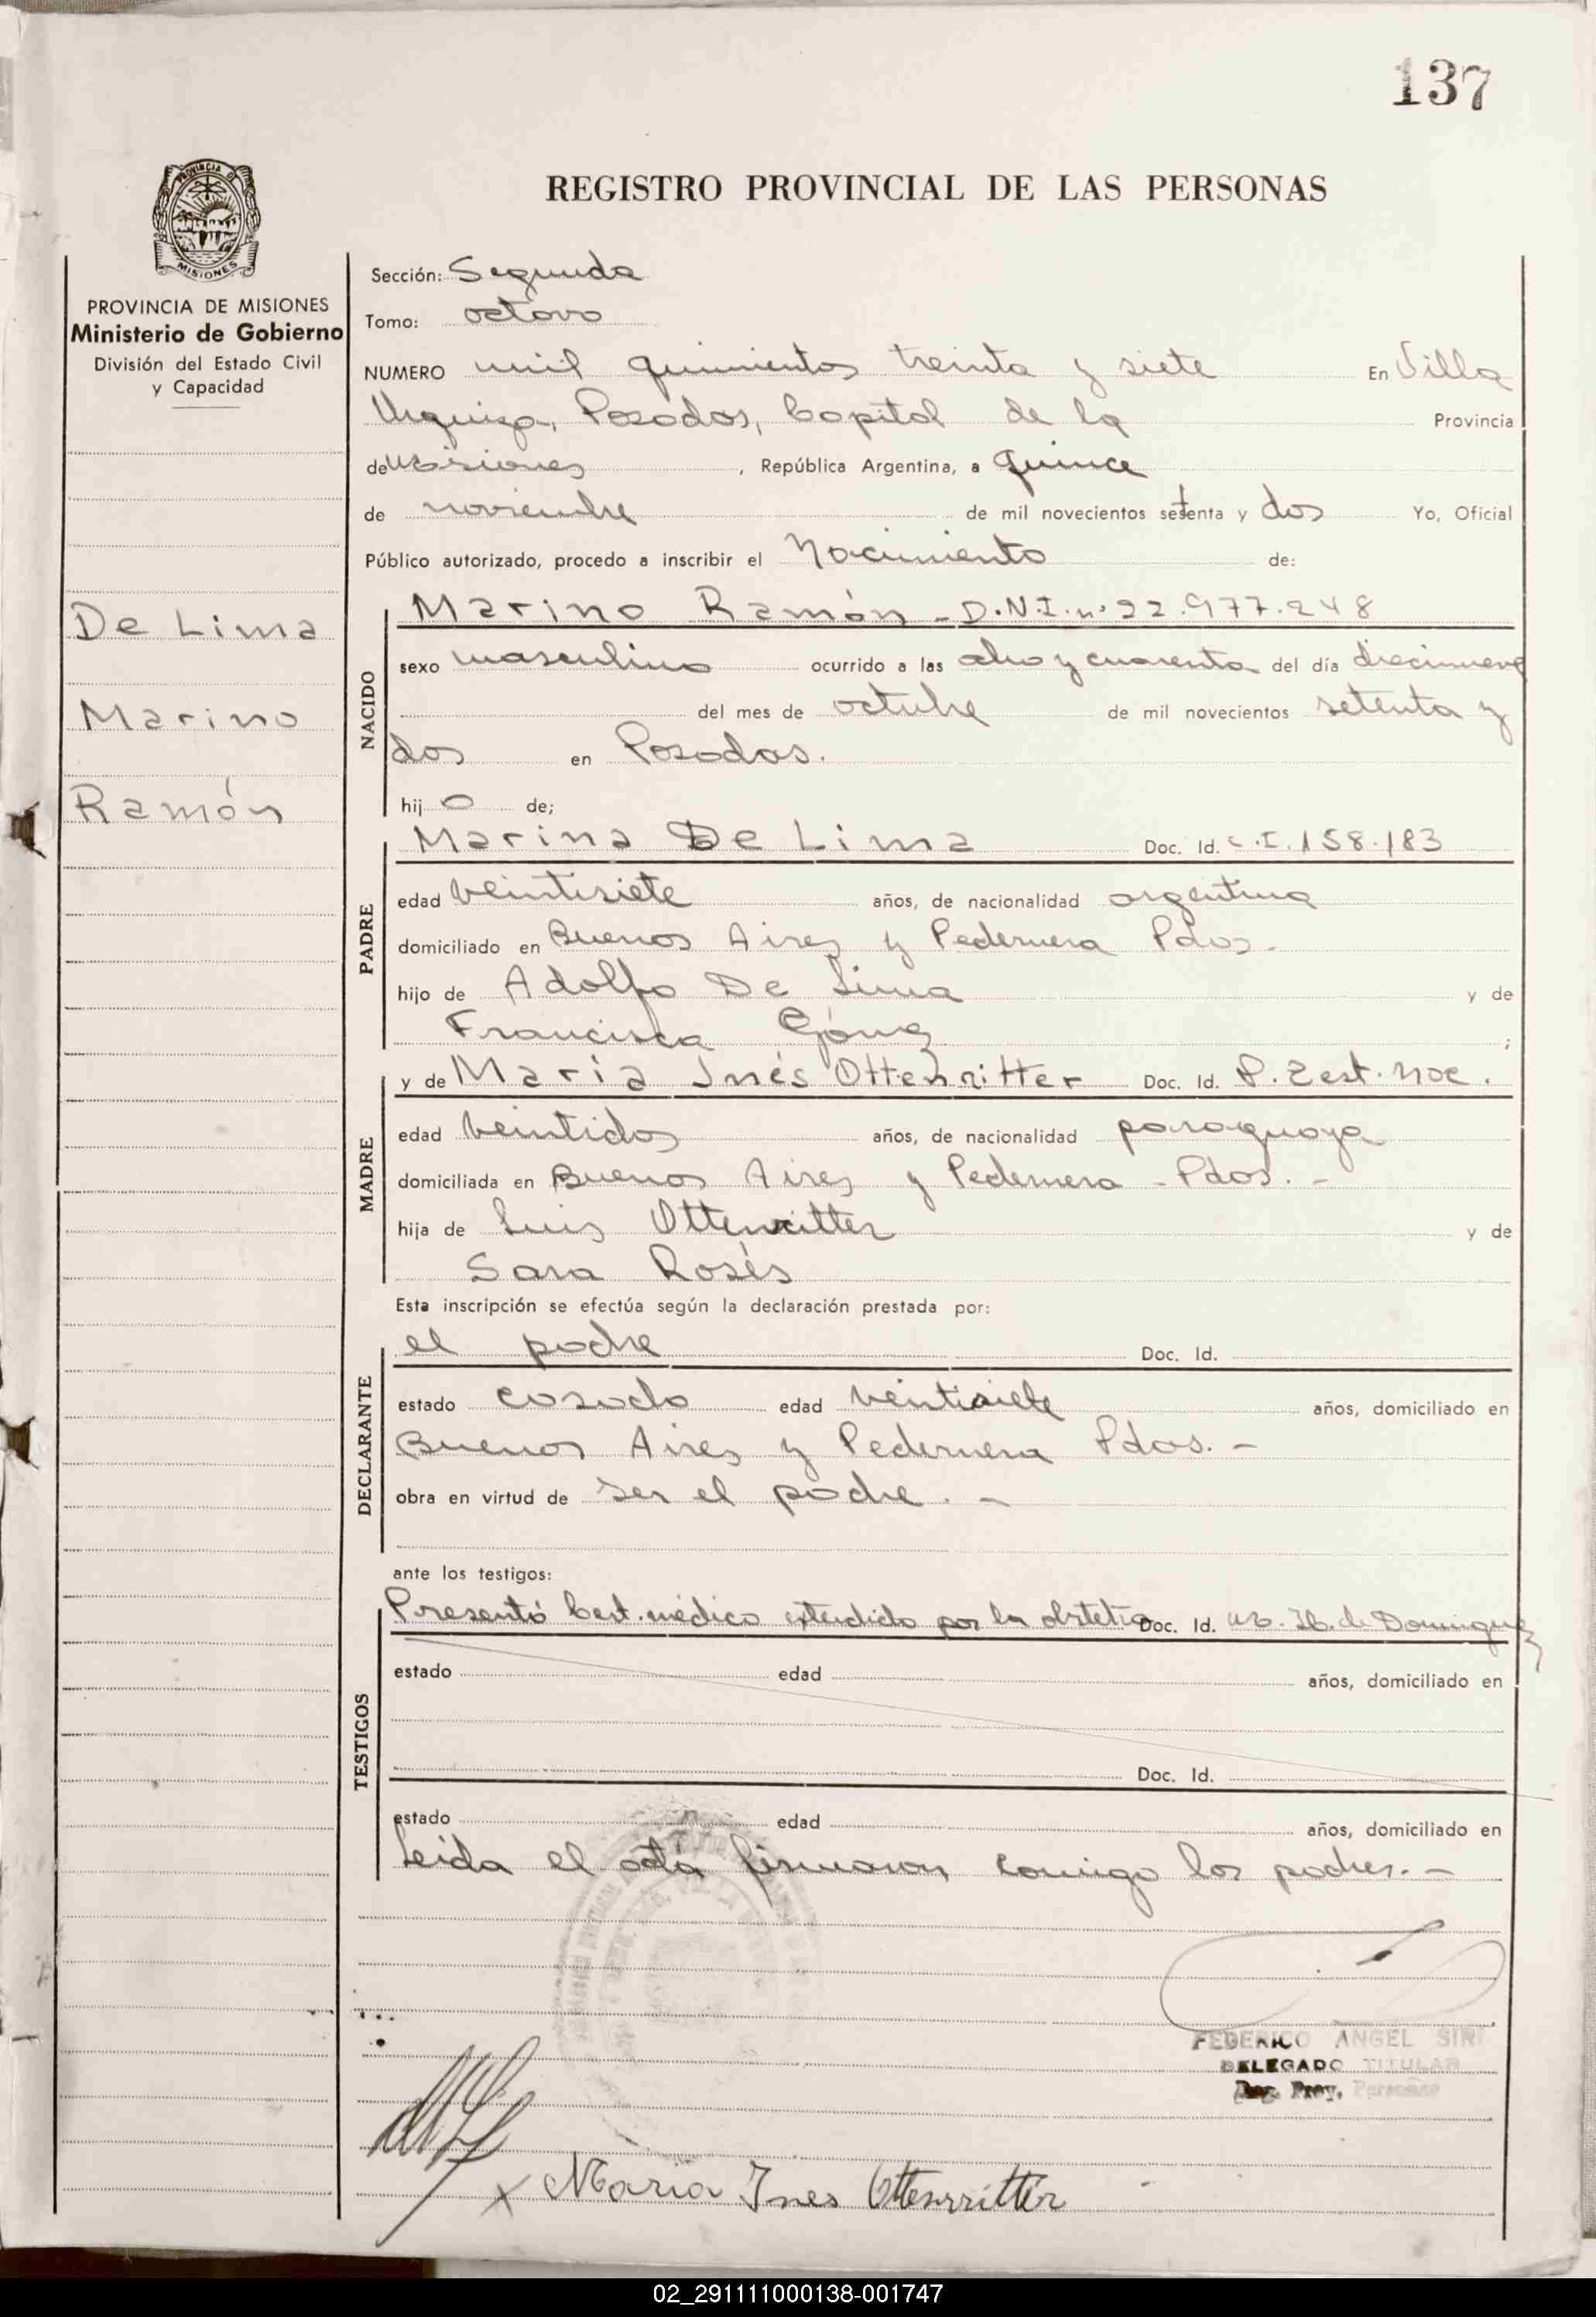 137
REGISTRO PROVINCIAL DE LAS PERSONAS
PROVINCIA DE MISIONES
Ministerio de Gobierno
División del Estado Civil
y Capacidad
De Lima
Marino
Ramón
Sección: Segunda
Tomo: octavo
NUMERO mil quinientos treinta y siete En Villa
Urquiza, Posadas, Capital de la Provincia
de Misiones, República Argentina, a quince
de noviembre de mil novecientos setenta y dos Yo, Oficial
Público autorizado, procedo a inscribir el Nacimiento de:
NACIDO
Marino Ramón - D.N.I. nº 22.977.248
sexo masculino ocurrido a las ocho y cuarenta del día diecinueve
del mes de octubre de mil novecientos setenta y
dos en Posadas.
hijo de;
PADRE
Marina De Lima Doc. Id. C.I. 158.183
edad veintisiete años, de nacionalidad argentina
domiciliado en Buenos Aires y Pedernera Pdas.-
hijo de Adolfo De Lima y de
Francisca ;
MADRE
y de María Inés Ottenritter Doc. Id. P. Nac.
edad veintidos años, de nacionalidad paraguaya
domiciliada en Buenos Aires y Pedernera - Pdas. -
hija de Luis Ottenritter y de
Sara Rosés
Esta inscripción se efectúa según la declaración prestada por:
DECLARANTE
el padre Doc. Id.
estado casado edad veintisiete años, domiciliado en
Buenos Aires y Pedernera Pdas. -
obra en virtud de ser el padre. -
ante los testigos:
TESTIGOS
Presentó Cert. médico extendido por la obstetra Doc. Id. de Dominguez
estado edad años, domiciliado en
Doc. Id.
estado edad años, domiciliado en
Leida el acta firmaron conmigo los padres. -
FEDERICO ANGEL SIRI
DELEGADO TITULAR
Reg. Prov. Personas
x Maria Ines Ottenrritter
02_291111000138-001747